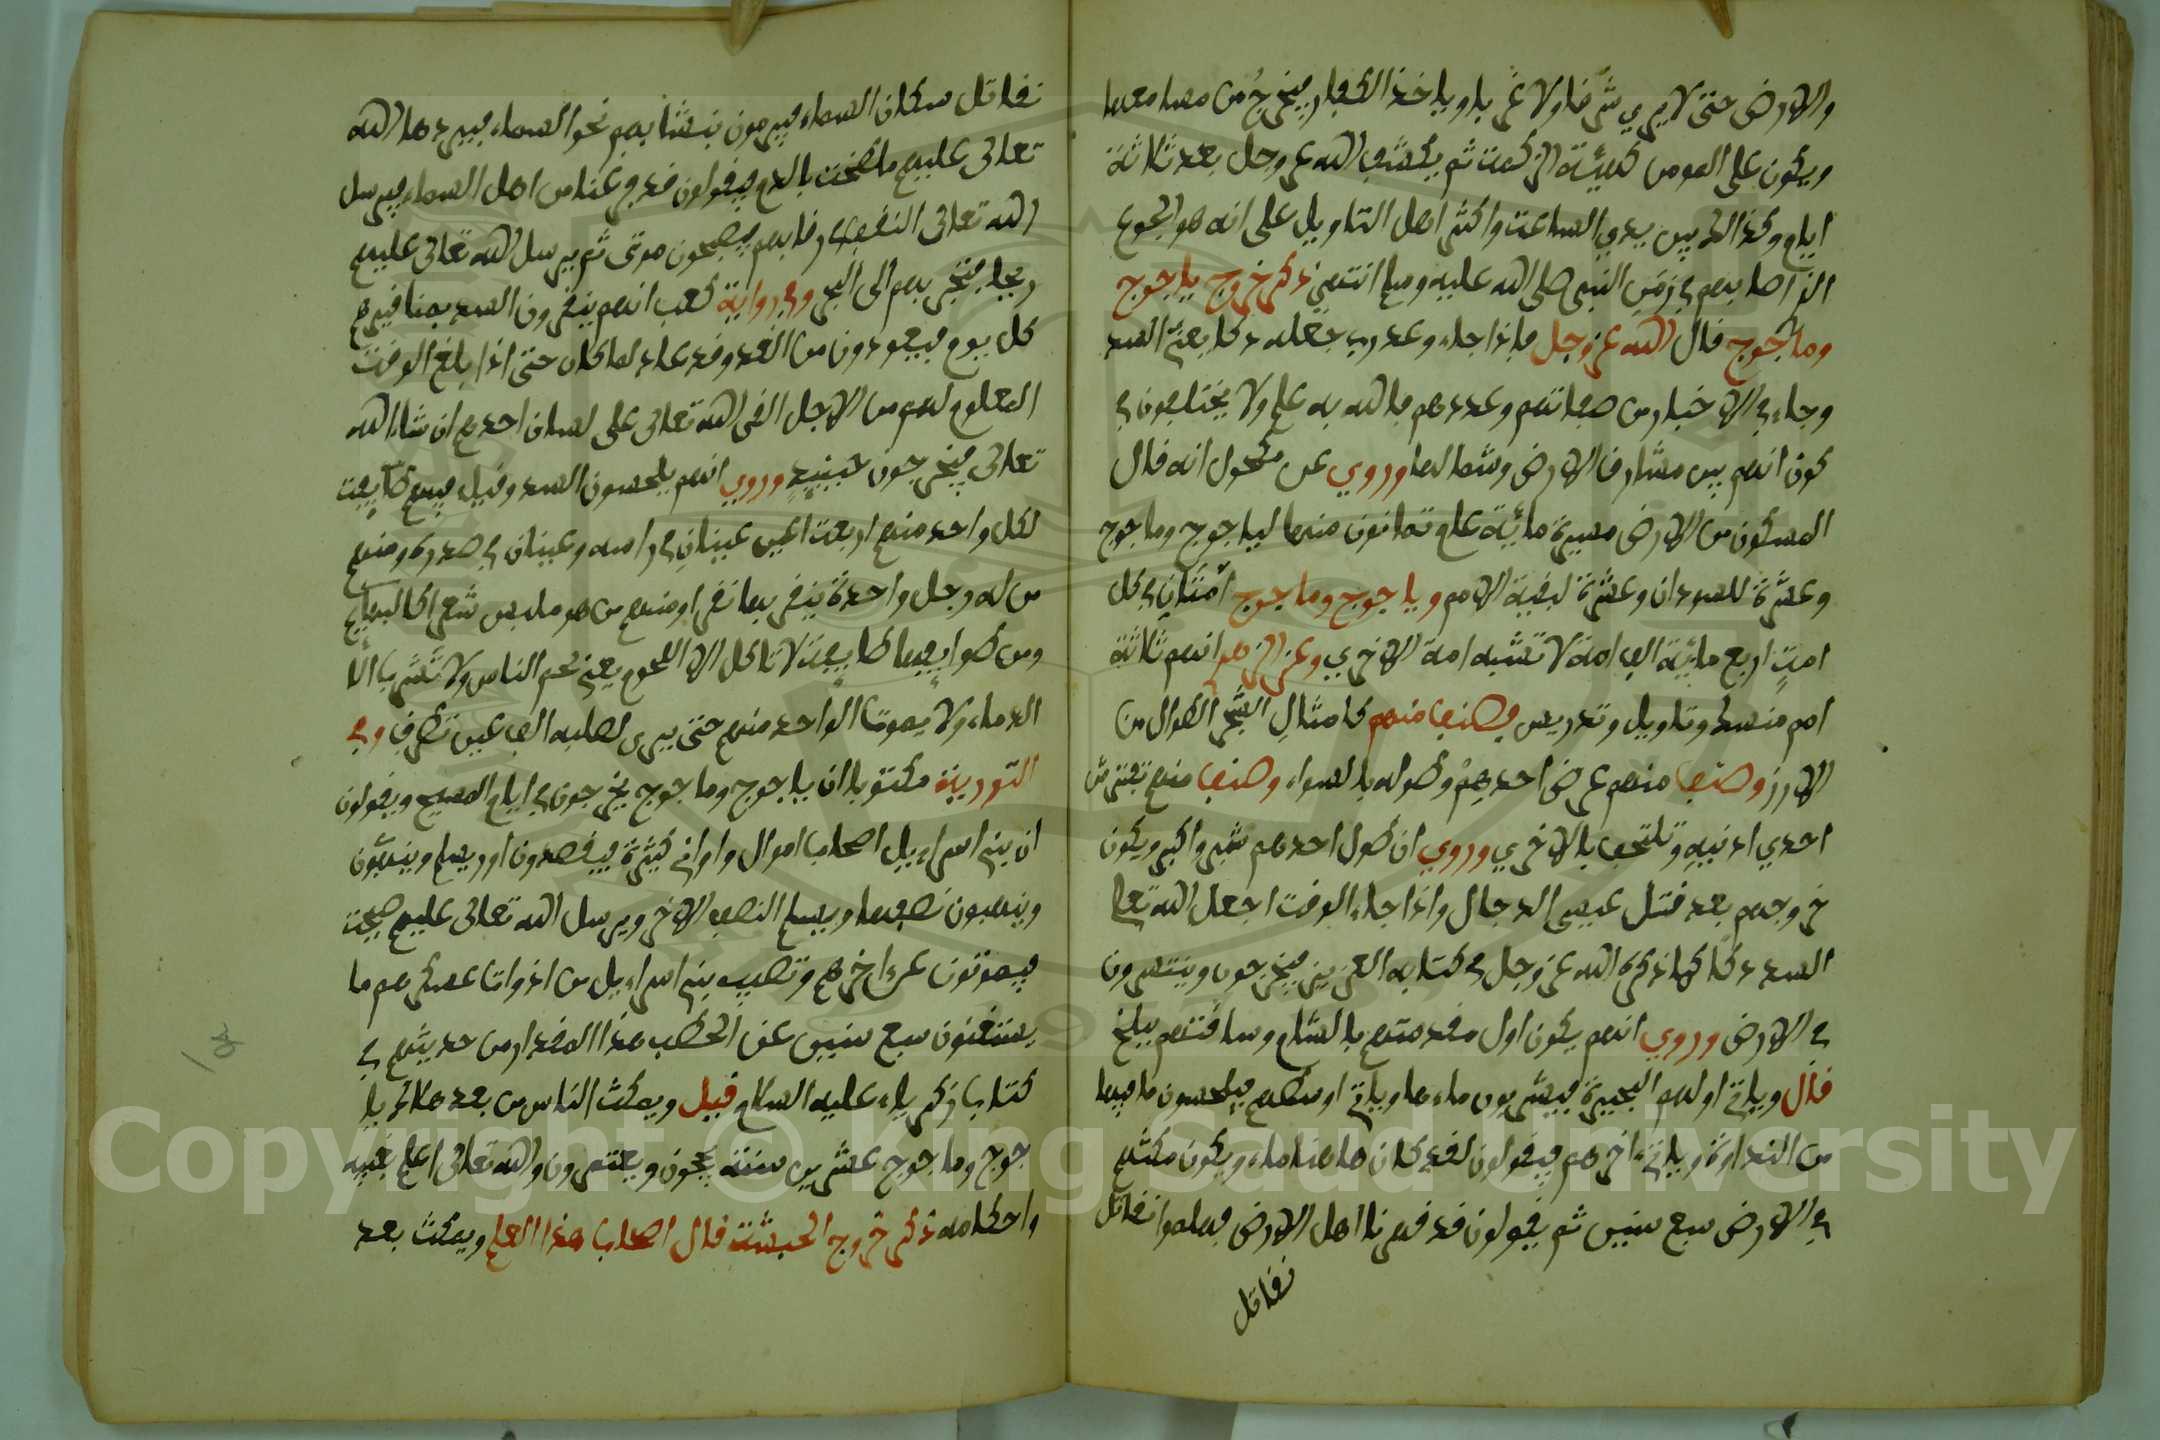 والارض حتى لا يرى شرقا ولا غربا وياخذ الكفار فيخرج من مسامعها
ويكون على المومن كهيئة الزكمة ثم يكشف الله عز وجل بعد ثلاثة
ايام وكذالك بين يدي الساعة واكثر اهل التاويل على انه هو الجوع
الذ اصابهم في زمن النبي صلى الله عليه وسلم انتهى ذكر خروج ياجوج
وماجوج قال الله عز وجل فإذا جاء وعد رب جعله دكا يعني السد
وجاء في الاخبار من صفاتهم وعددهم ما الله به علم ولا يختلفون في
كون انهم بين مشارق الارض وشمالها وروي عن مكحول انه قال
المسكون من الارض مسيرة مائية عام ثمانون منها لياجوج وماجوج
وعشرة للسودان وعشرة لبقية الامم وياجوج وماجوج أمتان في كل
امة اربع مائية الف امة لا تشبه امة الاخرى وعن الزهر انهم ثلاثة
امم منسك وتاويل وتدريس فصنف منهم كامثال الشجر الطوال من
الارز وصنف منهم عرض احدهم وطوله بالسواء وصنف منهم تفترش
احدي اذنيه وتلتحف بالاخري وروي ان طول احدهم شبر واكبر ويكون
خروجهم بعد قتل عيسى الدجال واذا جاء الوقت اجعل الله تعالى
السد دكا كما ذكره الله عز وجل في كتابه العزيز فيخرجون وينتشرون
في الارض وروي انهم يكون اول مقدمتهم بالشام وساقتهم ببلخ
قال وياتي اولهم البحيرة فيشربون ماءها وياتي اوسطهم فيلحسون ما فيها
من النداوة وياتي اخرهم فيقولون لقد كان هاهنا ماء ويكون مكثهم
في الارض سبع سنين ثم يقولون قد قهرنا اهل الارض فهلموا نقاتل
نقاتل
نقاتل سكان السماء فيرمون بنشابهم نحو السماء فيردها الله
تعالى عليهم ملطخة بالدم فيقولون قد فرغنا من اهل السماء فيرسل
الله تعالى النغف في رقابهم فيصبحون موتى ثم يرسل الله تعالى عليهم
ريحا فتجر بهم الى البحر وفي رواية كعب انهم ينقرون السد بمناقيرهم
كل يوم فيعودون من الغد وقد عاد لما كان حتى اذا بلغ الوقت
المعلوم لهم من الاجل القى الله تعالى على لسان احدهم ان شاء الله
تعالى فيخرجون حينيذ وروي انهم يلحسون السد وقيل فيهم طايفة
لكل واحد منهم اربعة اعين عينان في راسه وعينان في صدره ومنهم
من له رجل واحدة ينقر بها نقرا ومنهم من هو ملبس شعرا كالبهايم
ومن طوايفها طايفة لا تاكل الا اللحوم يعني لحم الناس ولا تشرب الا
الدماء ولا يموت الواحد منهم حتى يرى لصلبه الف عين تطرف وفي
التورية مكتوب ان ياجوج وماجوج يخرجون في ايام المسيح ويقولون
ان بني اسراءيل اصحاب اموال واواني كثيرة فيقصدون اوريسلم وينهبون
وينهبون نصفها ويسلم النصف الاخر ويرسل الله تعالى عليهم صيحة
فيموتون عن ءاخرهم وتصيب بني اسراءيل من اذوات عسكرهم ما
يستغنون سبع سنين عن الحطب هذا المقدار من حديثهم في
كتاب زكرياء عليه السلام قيل ويمكث الناس من بعد هلاك يا
جوج وماجوج عشرين سنة يحجون ويعتمرون والله تعالى اعلم بغيبه
واحكامه ذكر خروج الحبشة قال اصحاب هذا العلم ويمكث بعد
Copyright © King Saud University